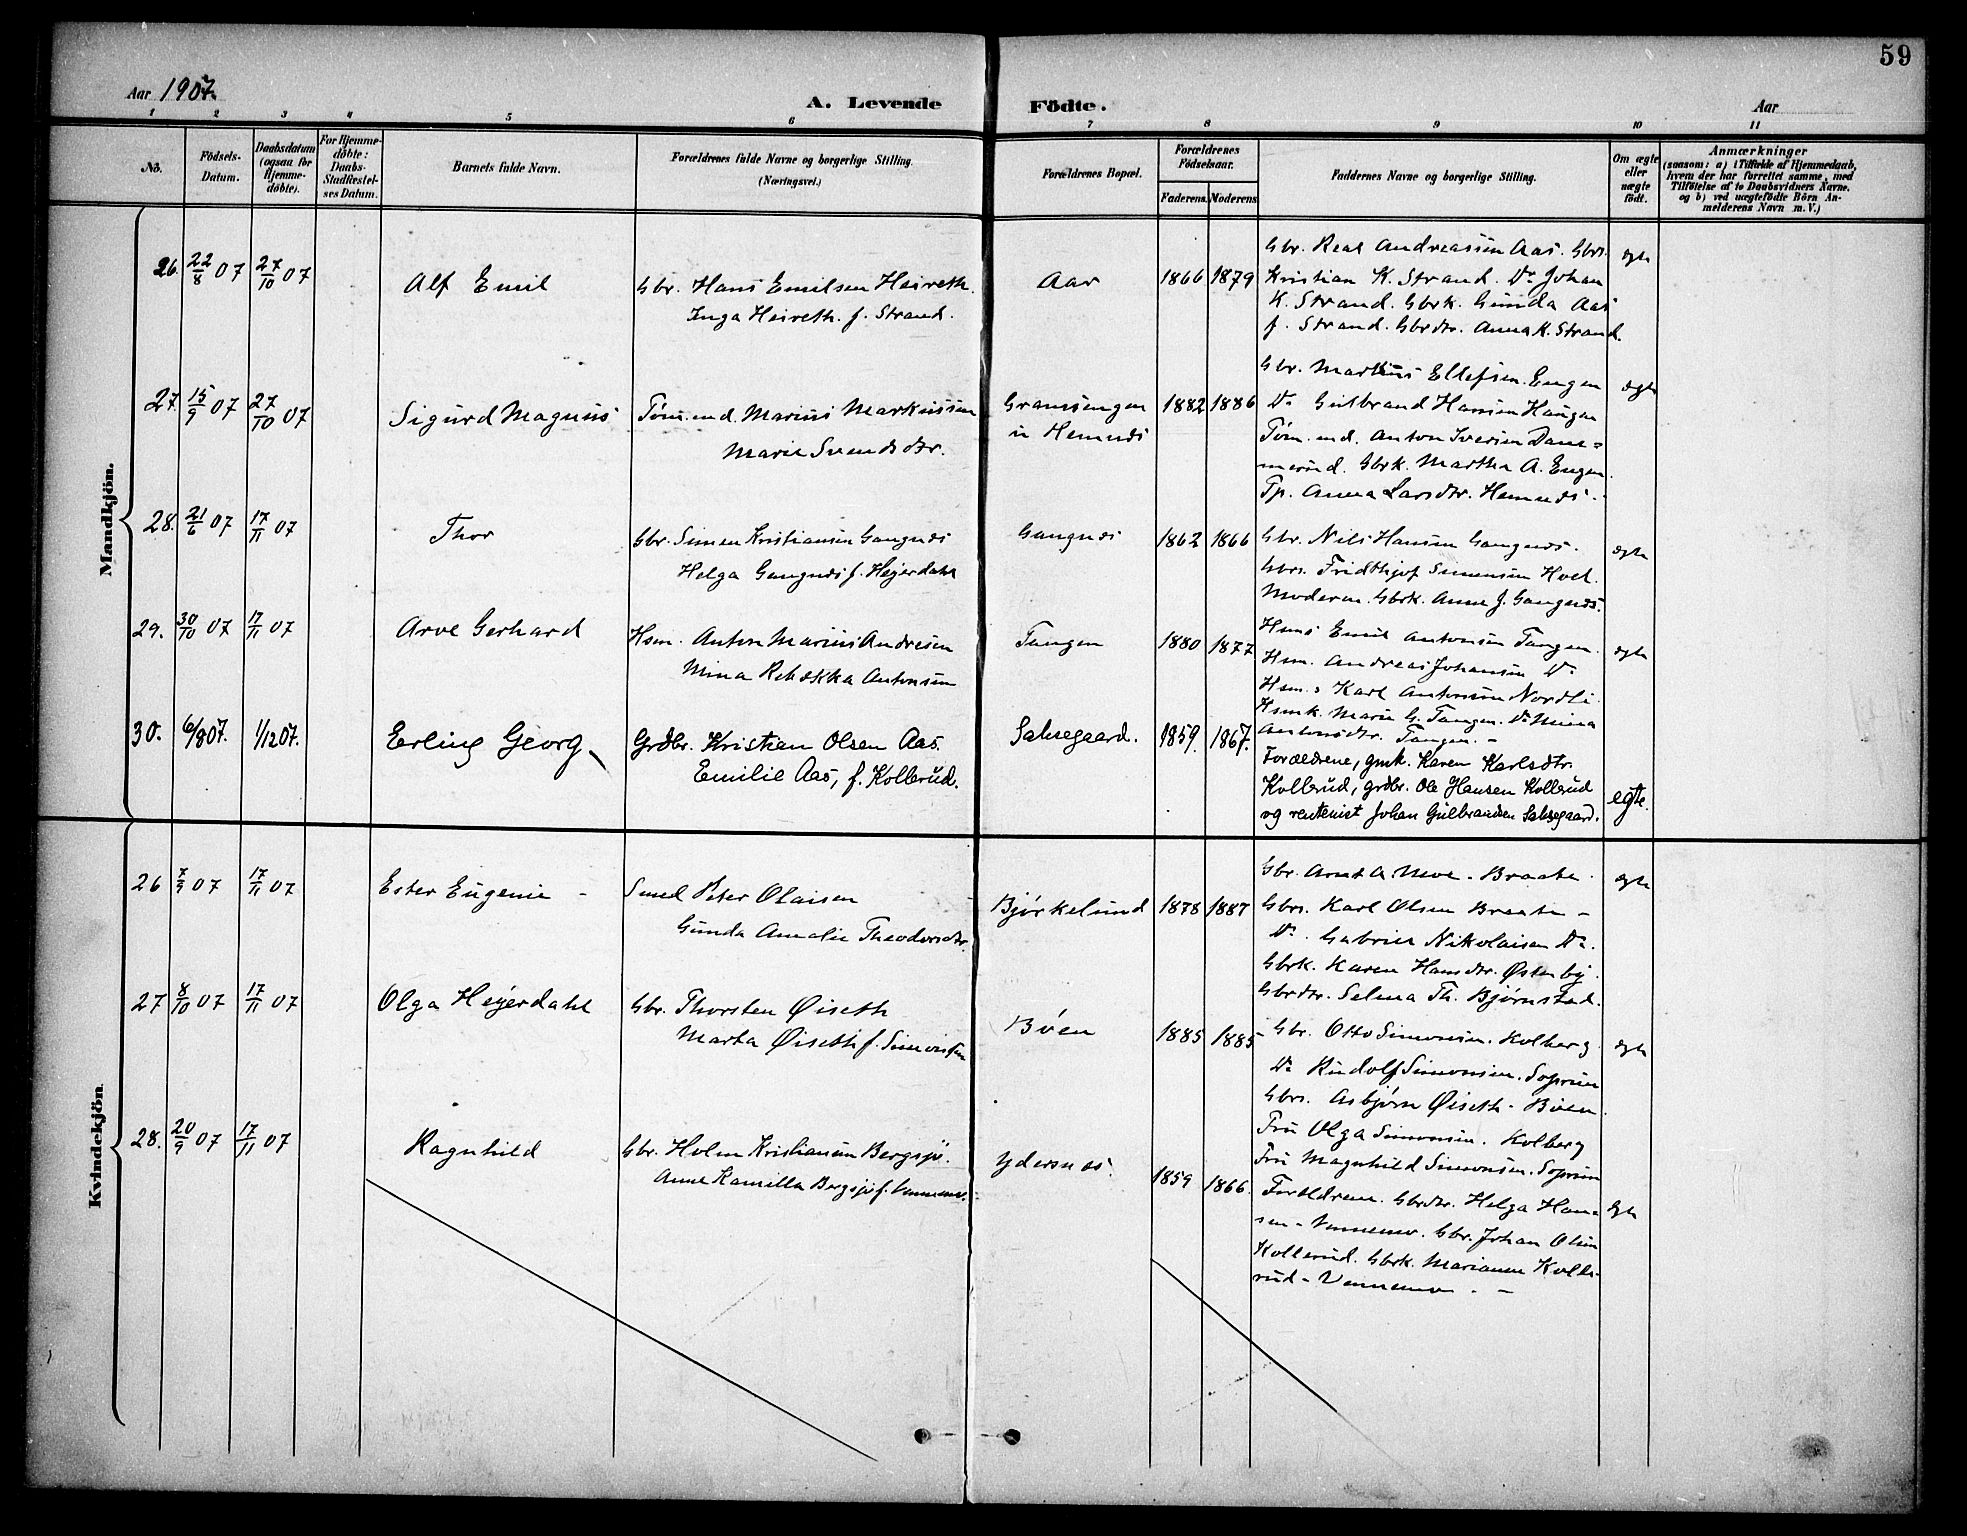 59
Aar 1907.
A. Levende Födte.
Aar
1 2 3 4 5 6 7 8 9 10 11
No.
Födsels-
Datum.
Daabsdatum
(ogsaa for
Hjemme-
döbte).
For Hjemme-
döbte:
Daabs-
Stadfæstel-
ses Datum.
Barnets fulde Navn.
Forældrenes fulde Navne og borgerlige Stilling.
(Næringsvei.)
Forældrenes Bopæl.
Forældrenes
Födselsaar.
Faderens. Moderens.
Faddernes Navne og borgerlige Stilling.
Om ægte
eller
uægte
födt.
Anmærkninger
(saasom: a) i Tilfælde af Hjemmedaab,
hvem der har forrettet samme, med
Tilföielse af to Daabsvidners Navne.
og b) ved uægtefödte Börn An-
melderens Navn m. V.)
Mandkjön.
26. 22/8 07 27/10 07
Alf Emil
Gbr. Hans Emilsen Heireth.
Inga Heireth. f. Strand.
Aar
1866 1879
Gbr. Andreassen Aas. Gbrs.
Kristian K. Strand. Do Johan
K. Strand. Gbrk. Gunda Aas
f. Strand. Gbrdtr. Anna K. Strand.
ægte
27. 15/9 07 27/10 07
Sigurd Magnus
Töm.md. Marius Markussen
Marie Svendsdtr.
u Hemnæs
1882 1886
Gbr. Markus Ellefsen Engen
Do Gulbrand Hansen Haugen
Töm. md. Anton Iversen Dam=
merud. Gbrk. Martha A. Engen.
Tp. Anna Larsdtr. Hemnæs.
ægte
28. 21/6 07 17/11 07
Thor
Gbr. Simen Kristiansen Gangnæs
Helga Gangnæs f. Hejerdahl
Gangnæs
1862 1866
Gbr. Nils Hansen Gangnæs.
Gbrs. Fridthjof Simensen Hoel.
Moderen. Gbrk. Anne J. Gangnæs.
ægte
29. 30/10 07 17/11 07
Arve Gerhard
Hsm. Anton Marius Andresen
Mina Rebekka Antonsen
Tangen
1880 1877
Hsms Emil Antonsen Tangen.
Hsm. Andreas Johansen Do
Hsm.s Karl Antonsen Nordli.
Hsmk. Marie G. Tangen. Do Mina
Antonsdtr. Tangen. -
ægte
30. 6/8 07. 1/12 07.
Erling Georg
Grdbr. Kristian Olsen Aas.
Emilie Aas, f. Kollerud.
Saksegaard.
1859. 1867.
Forældrene, gmk. Karen Karlsdtr.
Kollerud, grdbr. Ole Hansen Kollerud
og rentenist Johan Gulbrandsen Saksegaard.
egte.
Kvindekjön
26 7/9 07 17/11 07
Ester Eugenie -
Smed Peter Olaisen
Gunda Amalie Theodorsdtr.
Björkelund
1878 1887
Gbr. Arnt A. Moe. Braate.
Gbrs. Karl Olsen Braate -
Do. Gabriel Nikolaisen Do.
Gbrk. Karen Hansdtr. Østenby.
Gbrdtr. Selma Th. Bjørnstad.
ægte
27 8/10 07 17/11 07
Olga Heyerdahl
Gbr. Thorsten Øiseth
Marta Øiseth f. Simonsen
Bøen
1885 1885
Gbr. Otto Simonsen. Kolberg
Do Rudolf Simonsen. Soprim
Gbrs. Asbjørn Øiseth - Bøen.
Fru Olga Simonsen. Kolberg
Fru Magnhild Simonsen. Soprim
ægte
28. 20/9 07 17/11 07
Ragnhild
Gbr. Holm Kristiansen Bergsjø.
Anne Kamilla Bergsjø f. Vennemo.
Ydersnes.
1859 1866.
Forældrene. Gbrdtr. Helga Han=
sen - Vennemo. Gbr. Johan Olsen
Kollerud. Gbrk. Marianne Kolle-
rud - Vennemo. -
ægte